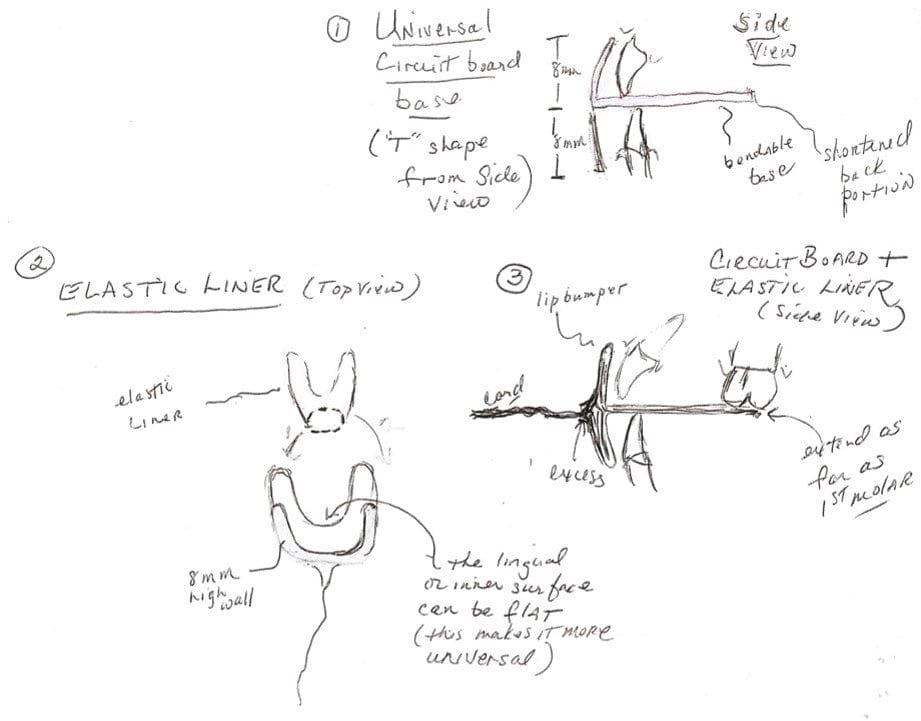 ① Universal
Circuit board
base
("T" shape
from Side
View)
8mm
8mm
Side
View
bendable
base
shortened
back
portion
②
ELASTIC LINER (Top View)
elastic
LINER
8mm
high
wall
the lingual
or inner surface
can be flat
(this makes it more
universal)
③
lip bumper
CIRCUIT BOARD +
ELASTIC LINER
(Side View)
cord
excess
extend as
far as
1ST MOLAR